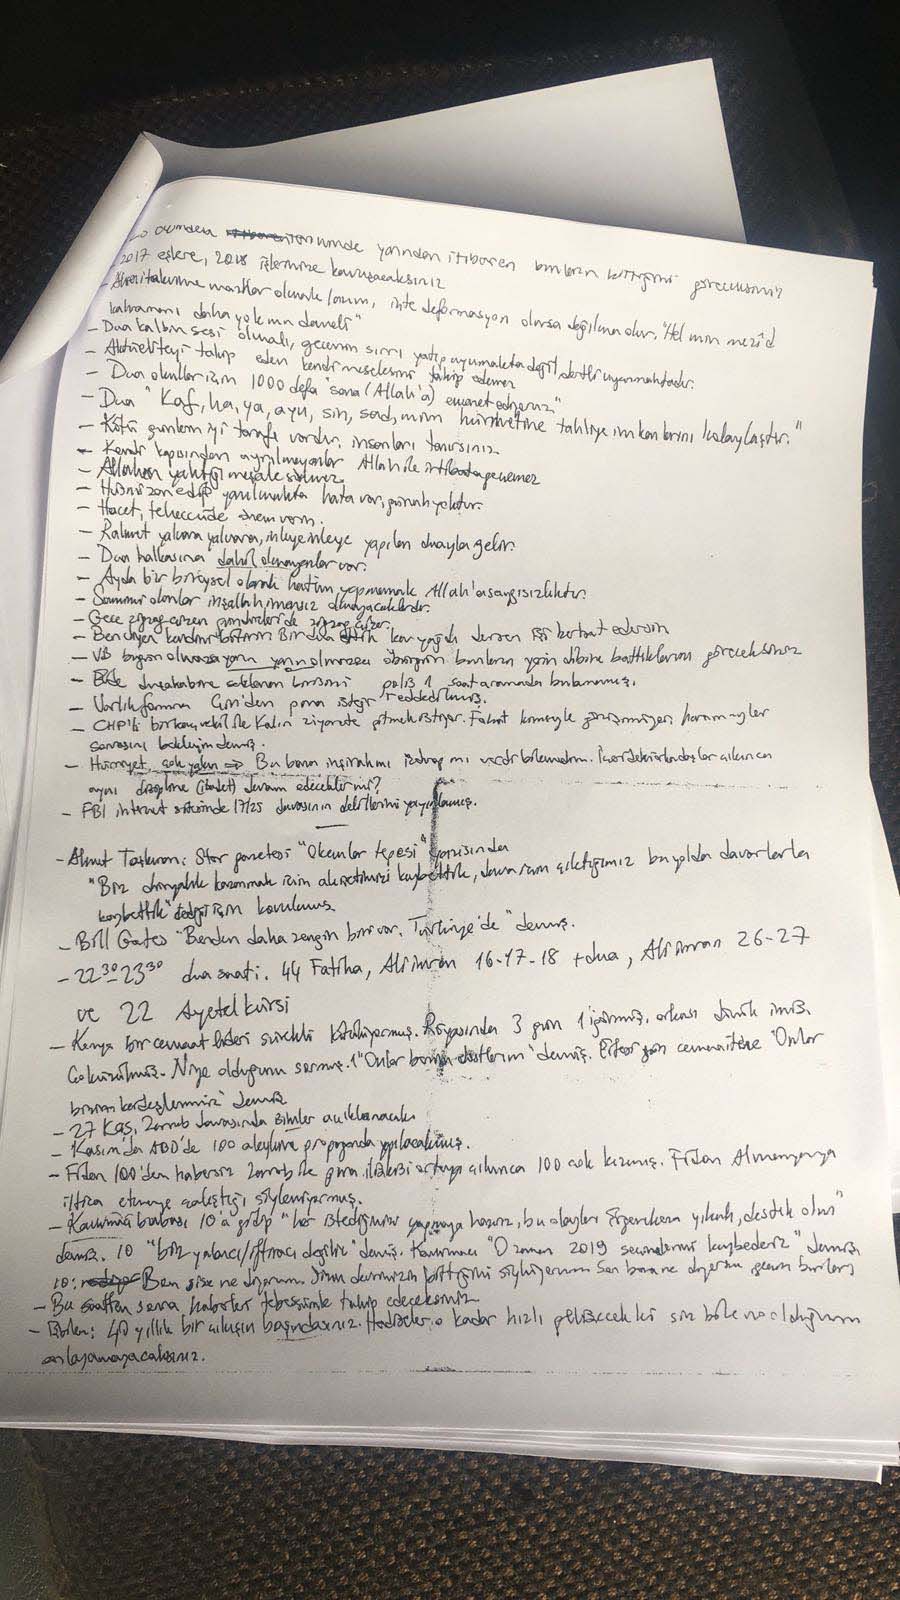 yarından itibaren bunların bittiğini göreceksiniz
2017 eşlere, 2018 işlerinize kavuşacaksınız
olmak lazım, deformasyon olursa dağılma olur. "Hel min mezid
kahramanı daha yok mu demeli"
- Dua kalbin sesi olmalı, gecenin sırrı yatıp uyumakta değil, dertli uyanmaktadır.
- Aktüaliteyi takip eden kendi meselesini takip edemez
- Dua okullar için 1000 defa "sana (Allah'a) emanet ediyoruz"
- Dua "Kaf, ha, ya, ayn, sin, sad, mim hürmetine tahliye imkanlarını kolaylaştır."
- Kötü günlerin iyi tarafı vardır, insanları tanırsınız.
- Kendi kapısından ayrılmayanlar Allah ile irtibata geçemez
- Allahın yaktığı meşale sönmez
- Hüsnüzan edip yanılmakta hata var, günah yoktur.
- Hacet, teheccüde önem verin.
- Rahmet yalvara yalvara, inleye inleye yapılan duayla gelir.
- Dua halkasına dahil olmayanlar var.
- Ayda bir bireysel olarak hatim yapmamak Allah'a saygısızlıktır.
- Samimi olanlar inşallah imansız olmayacaklardır.
- Gece zigzag çizen gündüzleri de zigzag çizer.
- Ben diyen kendini bitirir. Bir dua ettik kar yağdı dersen işi berbat edersin
- Ve bugün olmazsa yarın, yarın olmazsa öbürgün bunların yerin dibine battıklarını göreceksiniz
- polis 1 saat aramada bulamamış.
- Varlık fonuna Çin'den para isteği reddedilmiş.
- CHP'li birkaç vekil ile Kalın ziyarete gitmek istiyor. Fakat kimseyle görüşmüyor, haram aylar
sonrasını bekleyin demiş.
- Hürriyet çok yakın ⇒ Bu bana inşirahmı ızdırap mı verdi bilemedim. İçerdeki arkadaşlar çıkınca
aynı disipline (ibadet) devam edecekler mi?
- FBI internet sitesinde 17/25 davasının delillerini yayınlamış.
- Ahmet Taşkıran: Star gazetesi "Okçular tepesi" yazısında
"Biz dünyalık kazanmak için ahiretimizi kaybettik, dava için çıktığımız bu yolda davarlarla
kaybettik" dediği için kovulmuş.
- Bill Gates "Benden daha zengin biri var. Türkiye'de" demiş.
- 22³⁰-23³⁰ dua saati. 44 Fatiha, Ali imran 16-17-18 + dua, Ali imran 26-27
ve 22 Ayetel kürsi
- Kenya bir cemaat lideri sürekli kötülüyormuş. Rüyasında 3 gün görmüş. arkası dönük imiş.
Niye olduğunu sormuş. "Onlar benim dostlarım" demiş. Ertesi gün cemaatine "Onlar
bizim kardeşlerimiz" demiş
- 27 Kas. Zarrab davasında isimler açıklanacak
- Kasım'da ABD'de 100 aleyhine propaganda yapılacakmış.
- Fidan 100'den habersiz Zarrab ile para ilişkisi ortaya çıkınca 100 çok kızmış. Fidan Almanyaya
iltica etmeye çalıştığı söyleniyormuş.
- babası 10'a gidip "her istediğinizi yapmaya hazırız, bu olayları Ergenekona yıkalım, destek olun"
demiş. 10 "biz yalancı/iftiracı değiliz" demiş. "O zaman 2019 seçimlerini kaybederiz" demiş
10: Ben size ne diyorum. Sizin devrinizin bittiğini söylüyorum. Sen bana ne diyorsun
- Bu saatten sonra haberleri tebessümle takip edeceksiniz
- 40 yıllık bir çıkışın başındasınız. Hadiseler o kadar hızlı gelişecek ki siz bile ne olduğunu
anlayamayacaksınız.